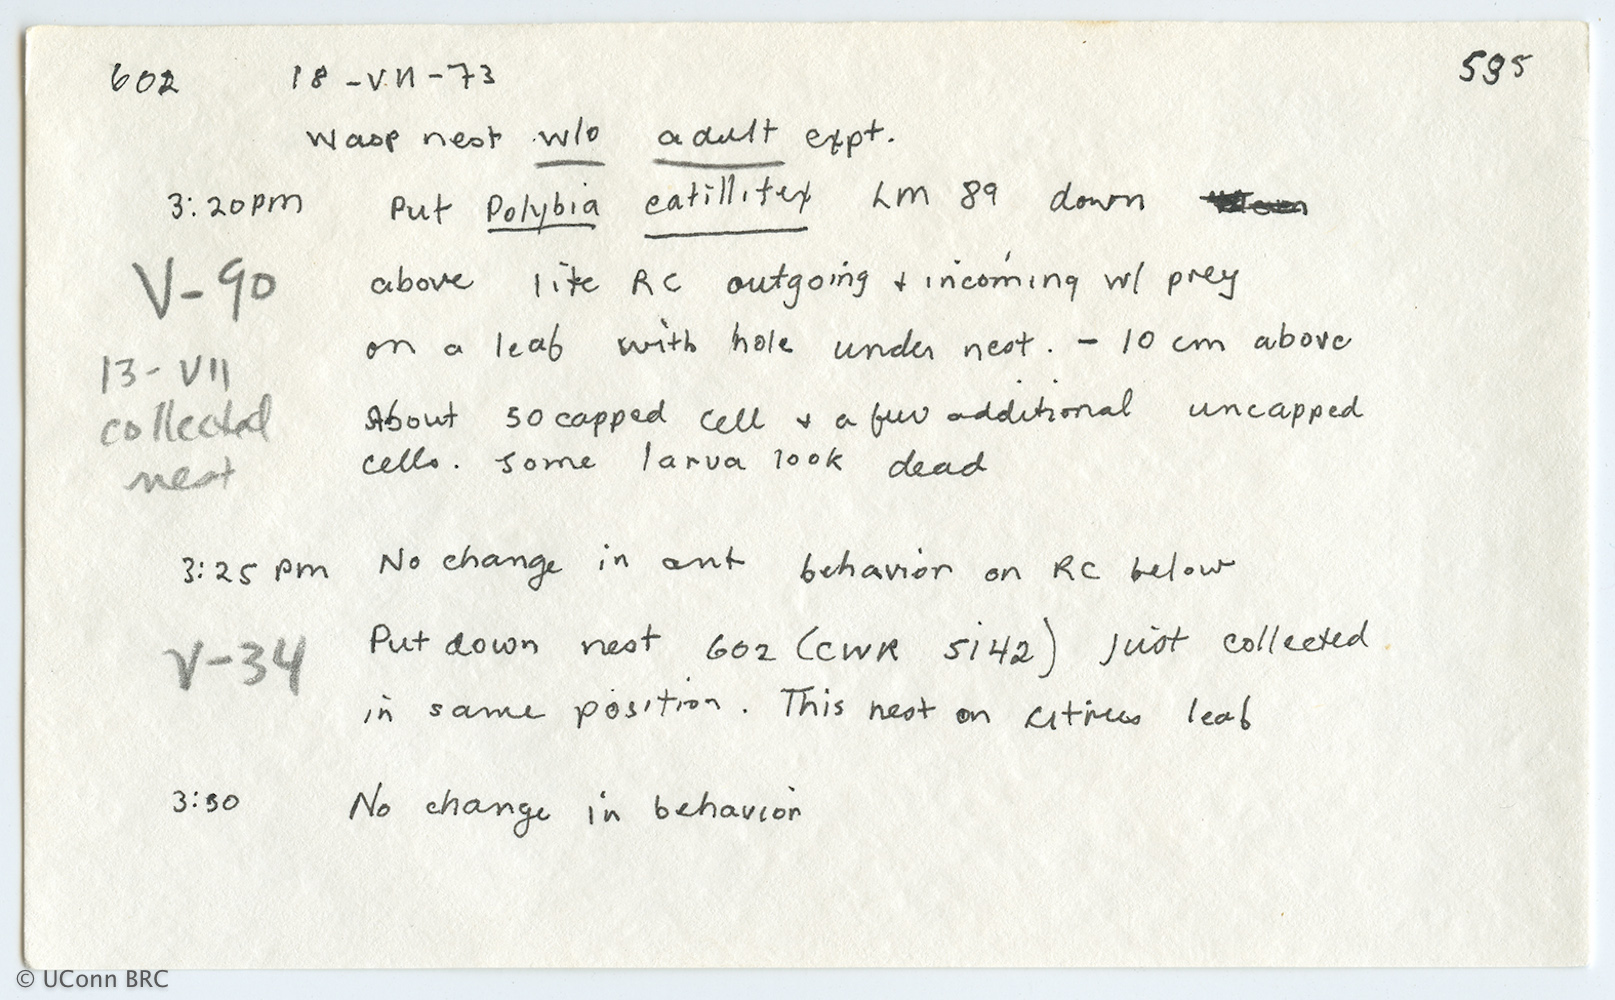 602 18-VII-73 595
Wasp nest w/o adult expt.
3:20pm Put Polybia catillifex LM 89 down
V-90 above lite RC outgoing + incoming w/ prey
on a leaf with hole under nest. - 10 cm above
13-VII
collected About 50 capped cell + a few additional uncapped
nest cells. Some larva look dead
3:25 pm No change in ant behavior on RC below
V-34 Put down nest 602 (CWR 5142) just collected
in same position. This nest on citrus leaf
3:30 No change in behavior
© UConn BRC